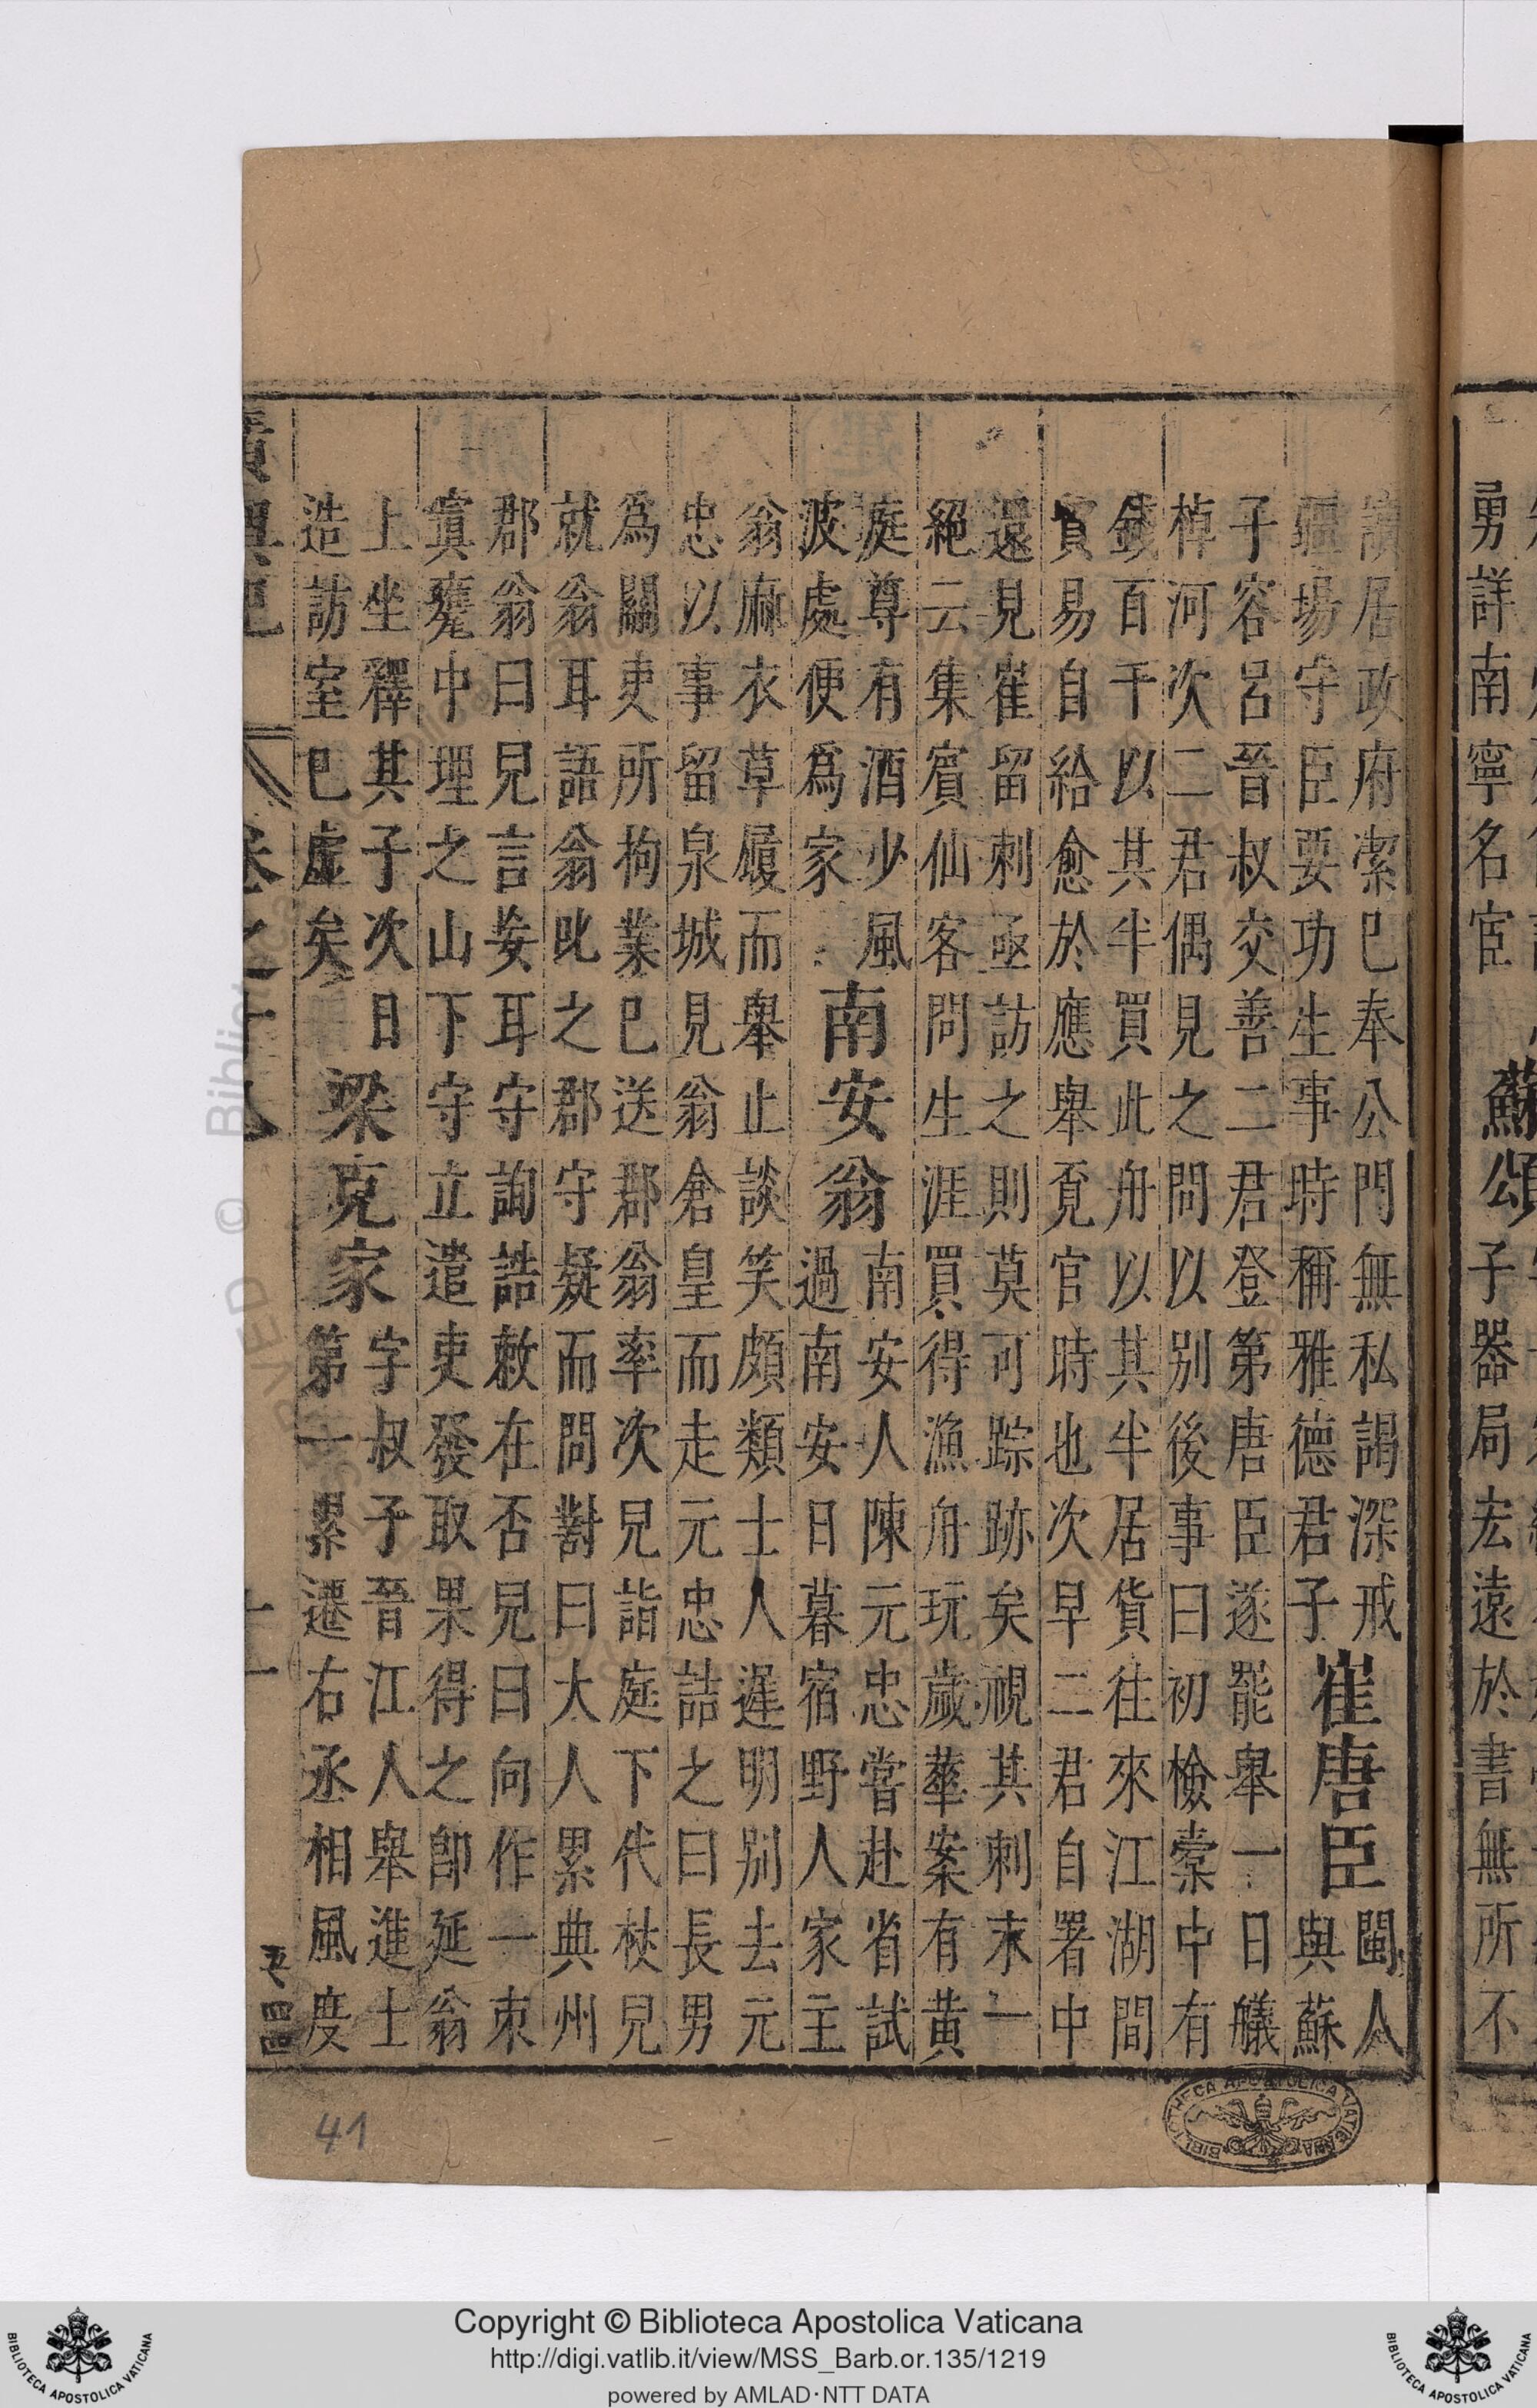 勇詳南寧名宦
蘇頌
子器局宏遠於書無所不
讀居政府潔已奉公門無私謁深戒
疆場守臣要功生事時稱雅德君子
崔唐臣
閩人
與蘇
子容呂晉叔交善二君登第唐臣遂罷舉一日艤
棹河次二君偶見之問以别後事曰初檢槖中有
錢百千以其半買此舟以其半居貨往來江湖間
貿易自給愈於應舉覓官時也次早二君自署中
還見崔留刺亟訪之則莫可踪跡矣視其刺末一
絕云集賓仙客問生涯買得漁舟玩歲華案有黄
庭尊有酒少風
波處便爲家
南安翁
南安人陳元忠嘗赴省試
過南安日暮宿野人家主
翁麻衣草履而舉止談笑頗類士人遲明别去元
忠以事留泉城見翁倉皇而走元忠詰之曰長男
爲關吏所拘業已送郡翁率次兒詣庭下代杖兒
就翁耳語翁叱之郡守疑而問對曰大人累典州
郡翁曰兒言妄耳守詢誥敕在否兒曰向作一束
寘甕中埋之山下守立遣吏發取果得之卽延翁
上坐釋其子次日
造訪室已虛矣
梁克家
字叔子晉江人舉進士
第一累遷右丞相風度
廣輿記
卷之十八
十一
41
Copyright © Biblioteca Apostolica Vaticana
http://digi.vatlib.it/view/MSS_Barb.or.135/1219
powered by AMLAD·NTT DATA